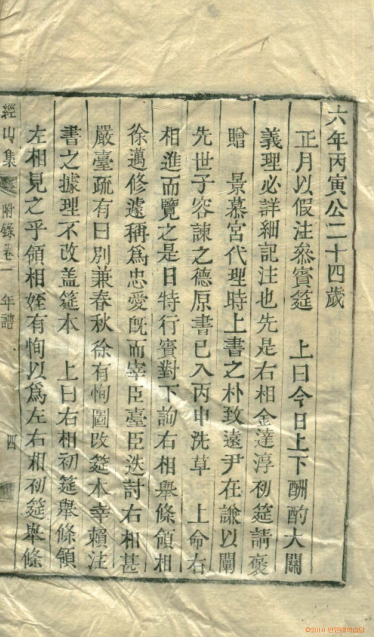 六年丙寅公二十四歲
正月以假注參賓筵 上曰今日上下酬酢大關
義理必詳細記注也先是右相金達淳初筵請褒
贈 景慕宮代理時上書之朴致遠尹在謙以闡
先世子容諫之德原書已入丙申洗草 上命右
相進而覽之是日特行賓對下詢右相擧條領相
徐邁修遽稱爲忠愛旣而宰臣臺臣迭討右相甚
嚴臺疏有曰別兼春秋徐有恂圖改筵本幸賴注
書之據理不改盖筵本 上曰右相初筵擧條領
左相見之乎領相姪有恂以爲左右相初筵擧條
經山集 附錄卷一 年譜 四